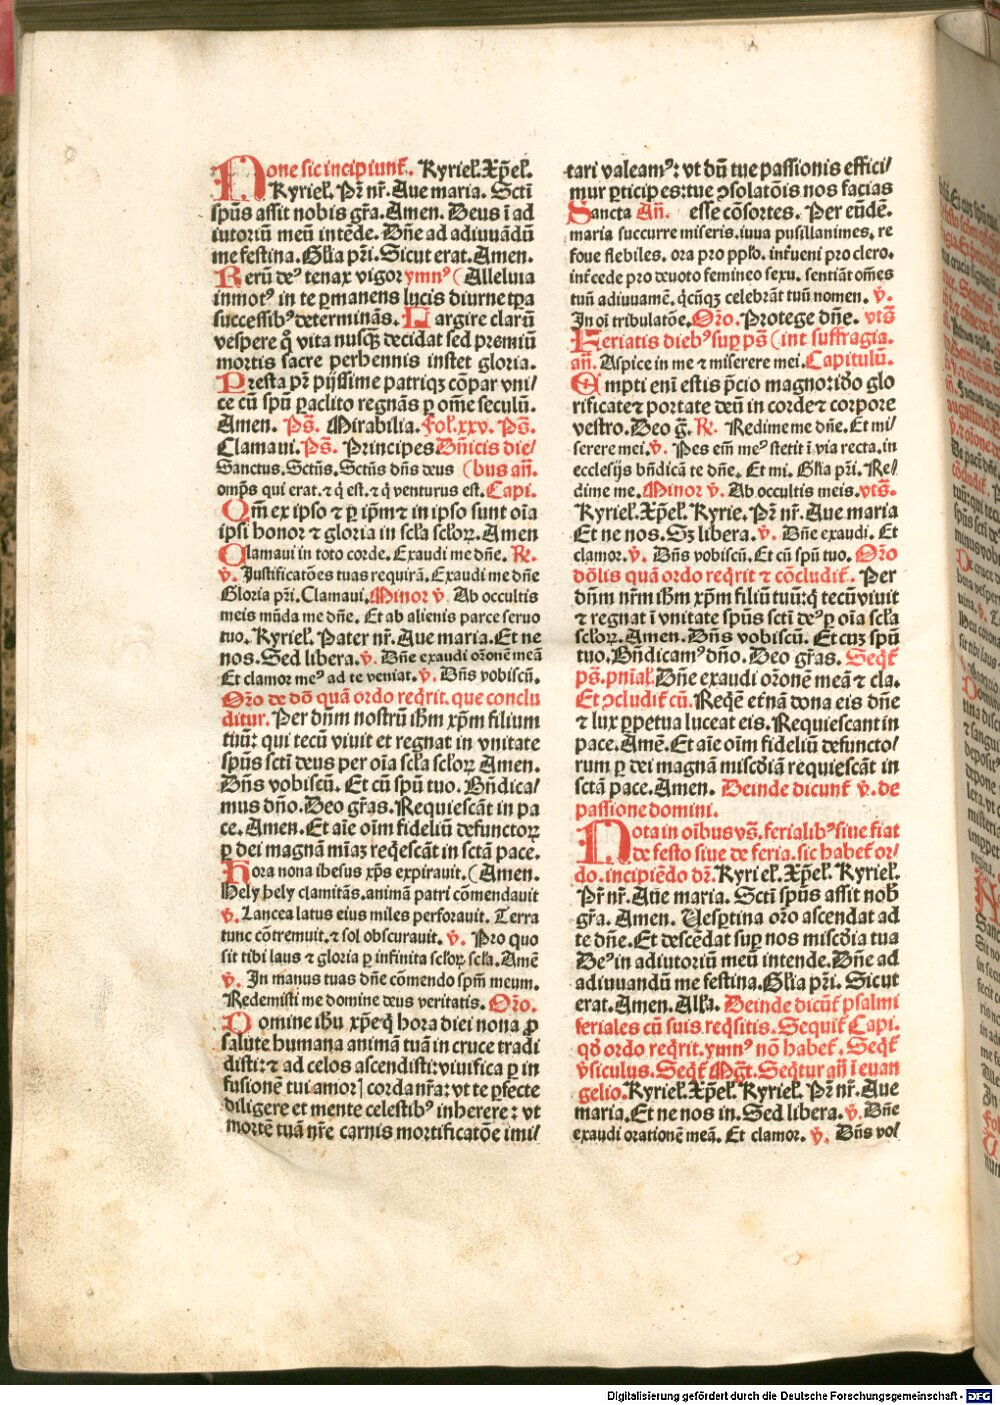 None sic incipiunt᷑. Kyriel̕. Xp̄el̕.
Kyriel̕. Pr̄ nr̄. Aue maria. Sctī
sp̄us assit nobis gr̄a. Amen. Deus ī ad
iutoriū meū intēde. Dn̄e ad adiuuādū
me festina. Gl̕ia pr̄i. Sicut erat. Amen.
Rerū deꝰ tenax vigor ymnꝰ (Alleluia
inmotꝰ in te ꝑmanens lucis diurne tꝑa
successibꝰ determinās. Largire clarū
vespere q̊ vita nusq̄ꝫ decidat sed premiū
mortis sacre perhennis instet gloria.
Presta pr̄ pijssime patriqꝫ cōpar vni/
ce cū spū ꝑaclito regnās ꝑ om̄e seculū.
Amen. Ps̄. Mirabilia. Fol̕. xxv. Ps̄.
Clamaui. Ps̄. Principes Dn̄icis die/
Sanctus. Sctūs. Sctūs dn̄s deus (bus an̄.
omp̄s qui erat. ⁊ q̇ est. ⁊ q̇ venturus est. Capi.
Qm̄ ex ipso ⁊ ꝑ ip̄m ⁊ in ipso sunt oīa
ipsi honor ⁊ gloria in scl̕a scl̕oꝝ. Amen
Clamaui in toto corde. Exaudi me dn̄e. R̄.
v̄. Justificatōes tuas requirā. Exaudi me dn̄e
Gloria pr̄i. Clamaui. Minor v̄. Ab occultis
meis mūda me dn̄e. Et ab alienis parce seruo
tuo. Kyriel̕. Pater nr̄. Aue maria. Et ne
nos. Sed libera. v̄. Dn̄e exaudi or̄onē meā
Et clamor meꝰ ad te veniat. v̄. Dn̄s vobiscū.
Or̄o de dō quā ordo req̇rit. que conclu
ditur. Per dn̄m nostrū ih̄m xp̄m filium
tuū: qui tecū viuit et regnat in vnitate
sp̄us sctī deus per oīa scl̕a scl̕oꝝ Amen.
Dn̄s vobiscū. Et cū spū tuo. Bn̄dica/
mus dn̄o. Deo gr̄as. Requiescāt in pa
ce. Amen. Et aīe oīm fideliū defunctoꝝ
ꝑ dei magnā mīaꝫ req̇escāt in sctā pace.
Hora nona ihesus xp̄s expirauit. (Amen.
Hely hely clamitās. animā patri cōmendauit
v̄. Lancea latus eius miles perforauit. Terra
tunc cōtremuit. ⁊ sol obscurauit. v̄. Pro quo
sit tibi laus ⁊ gloria ꝑ infinita scl̕oꝝ scl̕a. Amē
v̄. In manus tuas dn̄e cōmendo spm̄ meum.
Redemisti me domine deus veritatis. Or̄o.
Domine ih̄u xp̄e q̇ hora diei nona ꝓ
salute humana animā tuā in cruce tradi
disti: ⁊ ad celos ascendisti: viuifica ꝑ in
fusionē tui amorꝭ corda nr̄a: vt te ꝑfecte
diligere et mente celestibꝰ inherere: vt
mortē tuā nr̄e carnis mortificatōe imi/
tari valeamꝰ: vt dū tue passionis effici/
mur ꝑticipes: tue ↄsolatōis nos facias
Sancta An̄. esse cōsortes. Per eūdē.
maria succurre miseris. iuua pusillanimes. re
foue flebiles. ora pro ppl̕o. int᷑ueni pro clero.
int᷑cede pro deuoto femineo sexu. sentiāt om̄es
tuū adiuuamē. q̇cūqꝫ celebrāt tuū nomen. v̄.
In oī tribulatōe. Or̄o. Protege dn̄e. vts̄
Feriatis diebꝰ suꝑ ps̄ (int suffragia.
an̄. Aspice in me ⁊ miserere mei. Capitulū.
Empti enī estis p̄cio magno: iō glo
rificate ⁊ portate deū in corde ⁊ corpore
vestro. Deo ḡ. R̄. Redime me dn̄e. Et mi/
serere mei. v̄. Pes eīm meꝰ stetit ī via recta. in
ecclesijs bn̄dicā te dn̄e. Et mi. Gl̕ia pr̄i. Re/
dime me. Minor v̄. Ab occultis meis. vts̄.
Kyriel̕. Xp̄el̕. Kyrie. Pr̄ nr̄. Aue maria
Et ne nos. Sꝫ libera. v̄. Dn̄e exaudi. Et
clamor. v̄. Dn̄s vobiscū. Et cū spū tuo. Or̄o
dōlis quā ordo req̇rit ⁊ cōcludit᷑. Per
dn̄m nr̄m ih̄m xp̄m filiū tuū: q̇ tecū viuit
⁊ regnat ī vnitate sp̄us sctī deꝰ ꝑ oīa scl̕a
scl̕oꝝ. Amen. Dn̄s vobiscū. Et cuꝫ spū
tuo. Bn̄dicamꝰ dn̄o. Deo gr̄as. Seq̇t᷑
ps̄. pn̄ial̕. Dn̄e exaudi or̄onē meā ⁊ cla.
Et ↄcludit᷑ cū. Req̇ē et᷑nā dona eis dn̄e
⁊ lux ꝑpetua luceat eis. Requiescant in
pace. Amē. Et aīe oīm fideliū defuncto/
rum ꝑ dei magnā miscd̄iā requiescāt in
sctā pace. Amen. Deinde dicunt᷑ v̄. de
passione domini.
Nota in oībus vs̄. ferialibꝰ siue fiat
de festo siue de feria. sic habet᷑ or/
do. incipiēdo dr̄. Kyriel̕. Xp̄el̕. Kyriel̕.
Pr̄ nr̄. Aue maria. Sctī sp̄us assit nob̄
gr̄a. Amen. Uesꝑtina or̄o ascendat ad
te dn̄e. Et descēdat suꝑ nos miscd̄ia tua
Deꝰ in adiutoriū meū intende. Dn̄e ad
adiuuandū me festina. Gl̕ia pr̄i. Sicut
erat. Amen. All̕a. Deinde dicūt᷑ psalmi
feriales cū suis req̇sitis. Sequit᷑ Capi.
qd̄ ordo req̇rit. ymnꝰ nō habet᷑. Seq̇t᷑
v̄siculus. Seq̇t᷑ Mgt̄. Seq̇tur an̄ ī euan
gelio. Kyriel̕. Xp̄el̕. Kyriel̕. Pr̄ nr̄. Aue
maria. Et ne nos in. Sed libera. v̄. Dn̄e
exaudi orationē meā. Et clamor. v̄. Dn̄s vo/
Digitalisierung gefördert durch die Deutsche Forschungsgemeinschaft - DFG